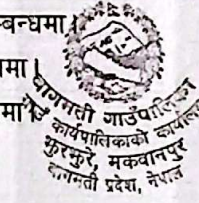 म्बन्धमा।
धमा।
मा
बागमती गाउँपालिका
कार्यपालिकाको कार्यालय
फुरफुरे, मकवानपुर
बागमती प्रदेश, नेपाल